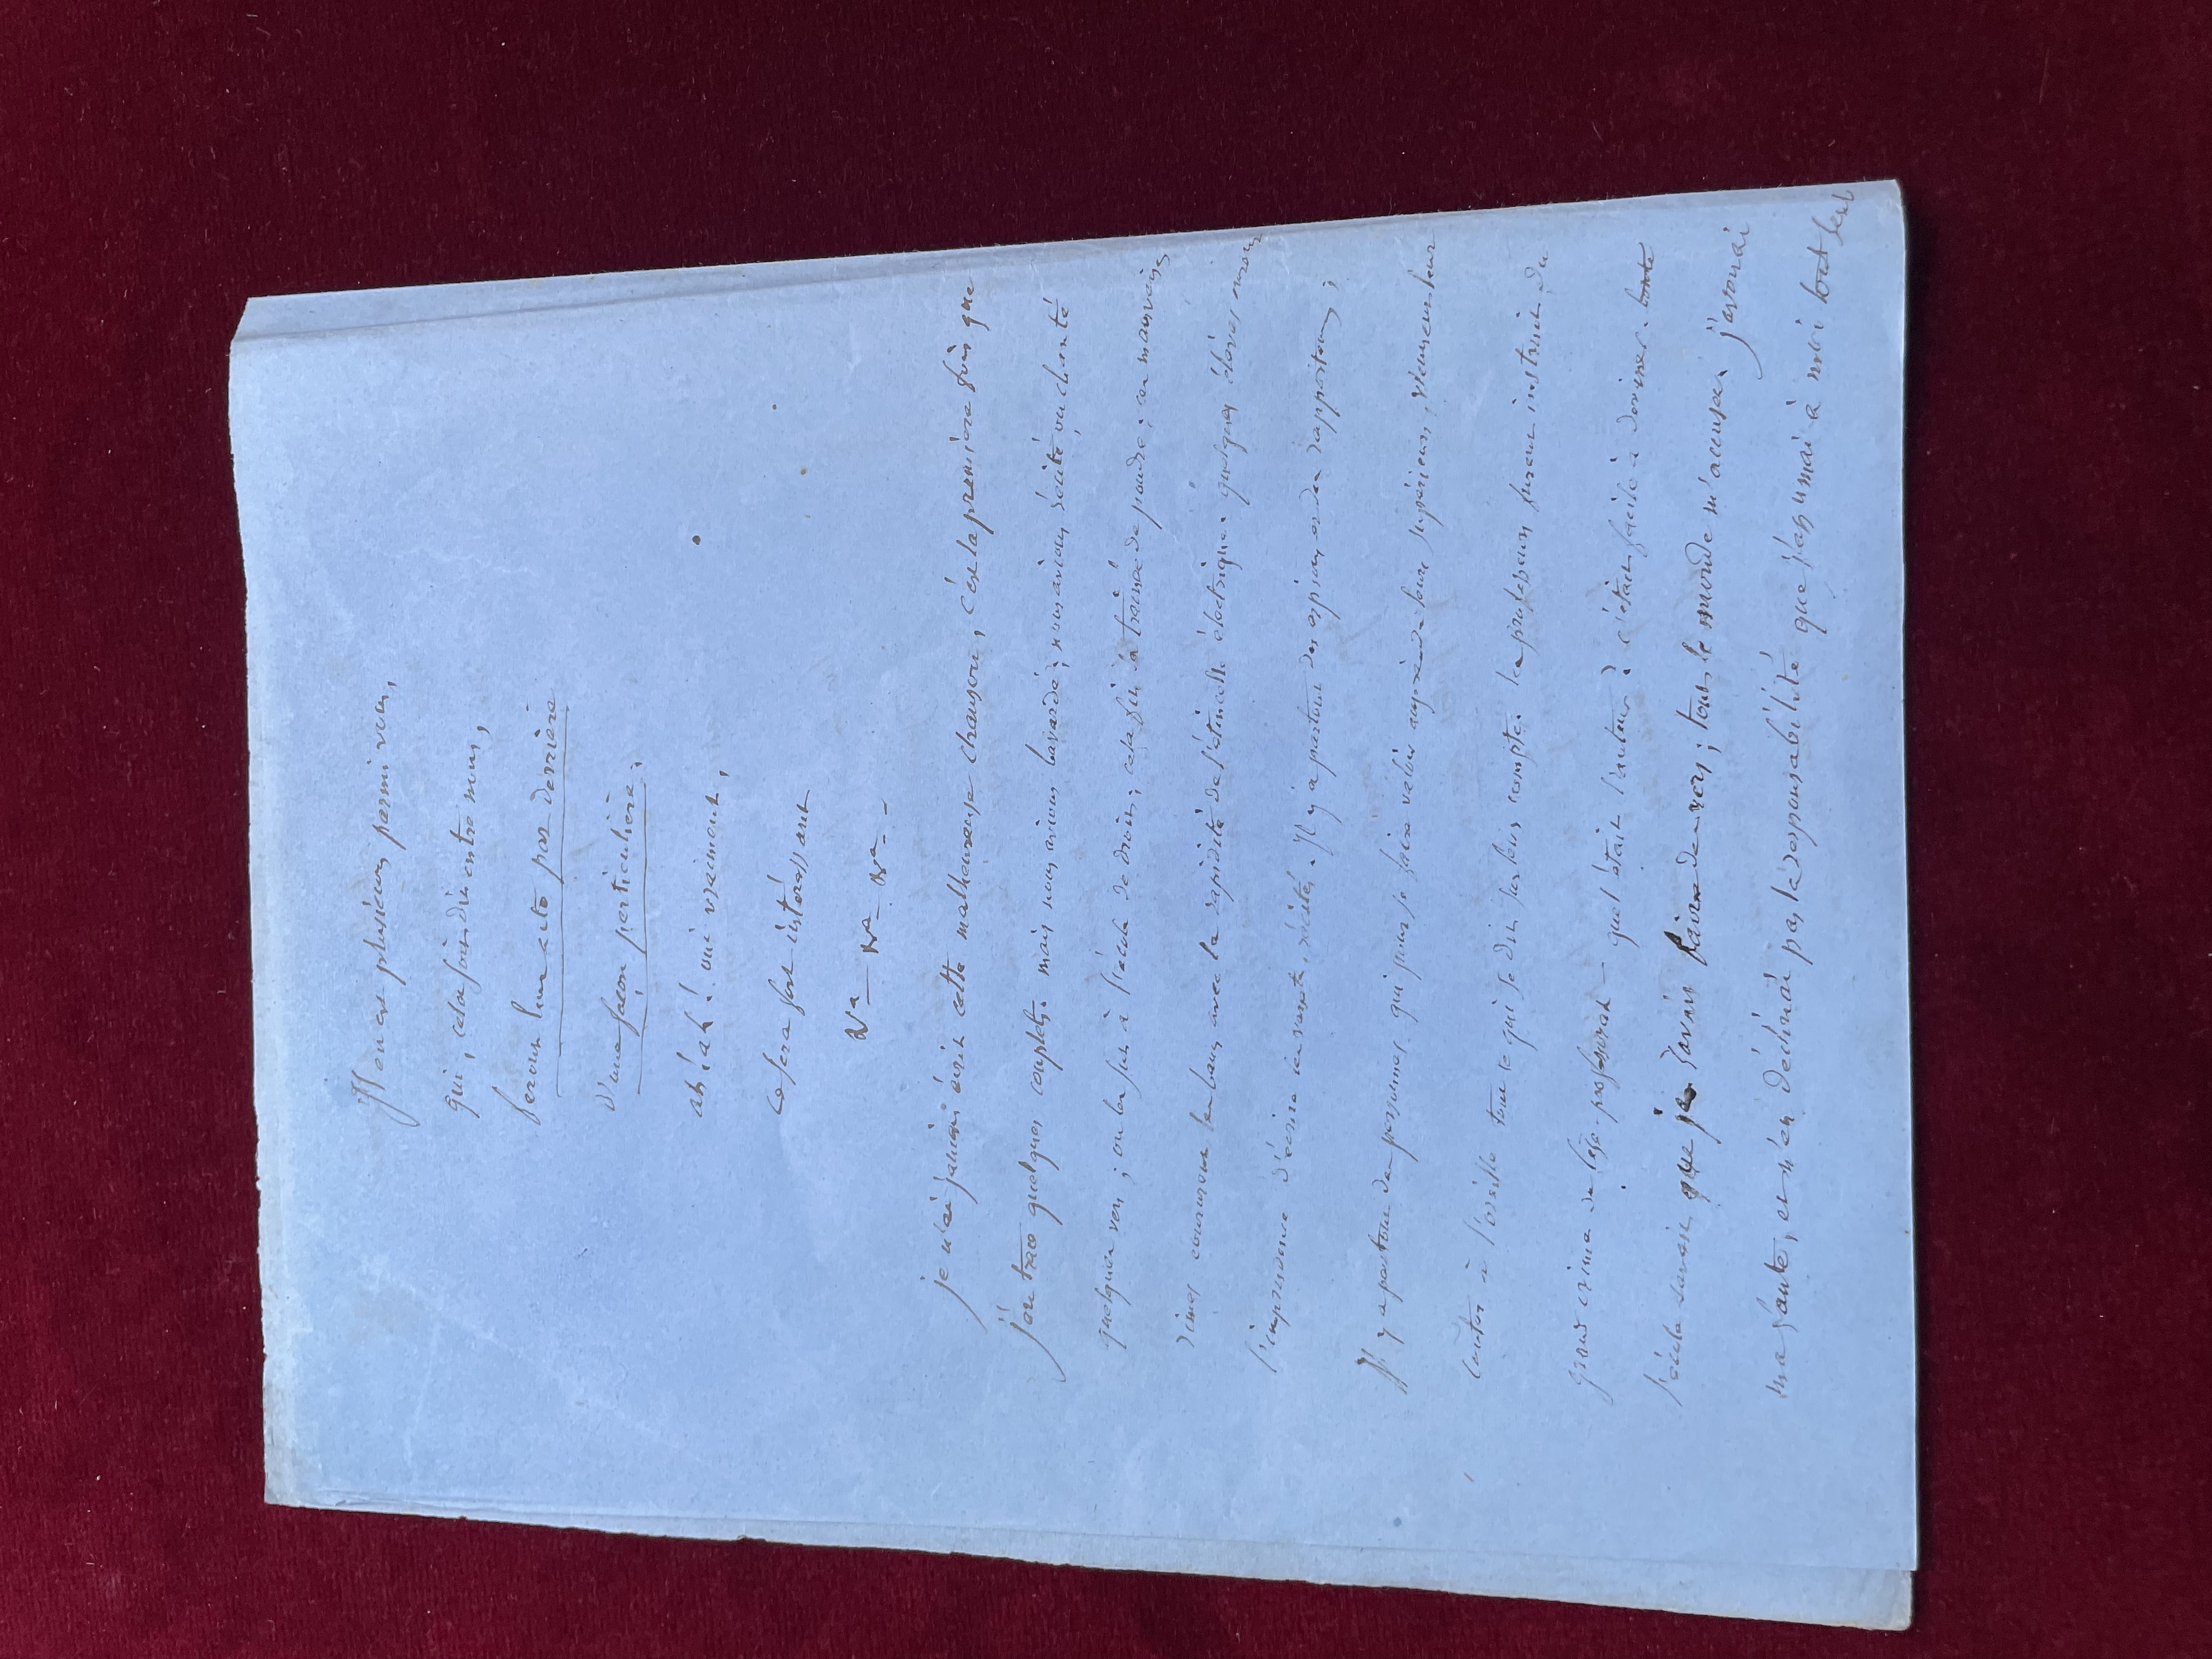 Il en est plusieurs parmi vous,
qui, cela soit dit entre nous,
feront leur acte par derrière
d'une façon particulière,
ah! ah! oui vraiment,
ce sera fort intéressant
Na — Na — Na —
je n'ai jamais écrit cette malheureuse chanson, c'est la première fois que
j'en trace quelques couplets. mais nous avions bavardé; nous avions récité ou chanté
quelques vers; on les sut à l'école de droit; cela fut la trainée de poudre; ces mauvaises
rimes coururent les bancs avec la rapidité de l'étincelle électrique. quelques élèves eurent
l'imprudence d'écrire ces vers récités. Il y a partout des espions et des rapporteurs;
Il y a partout des personnes qui pour se faire valoir auprès de leurs supérieurs, viennent leur
conter à l'oreille tout ce qui se dit sur leur compte. les professeurs furent instruits du
grand crime de lèse-professorat — quel était l'auteur? c'était facile à deviner. toute
l'école savait que je savais faire des vers; tout le monde m'accusa; j'avouai
ma faute, et n'en déclinai pas la responsabilité que j'assumai à moi tout seul